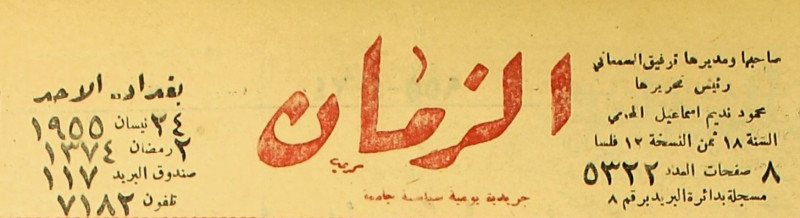 صاحبها ومديرها توفيق السمعاني
رئيس تحريرها
محمود نديم اسماعيل المحامي
السنة ١٨ ثمن النسخة ١٢ فلسا
٨ صفحات العدد ٥٣٢٢
مسجلة بدائرة البريد برقم ٨
الزمان
جريدة يومية سياسية جامعة
بغداد، الاحد
٢٤ نيسان ١٩٥٥
٢ رمضان ١٣٧٤
صندوق البريد ١١٧
تلفون ٧١٨٢